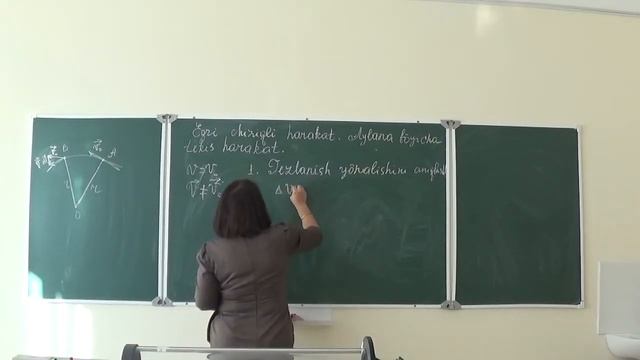 Egri chiziqli harakat. Aylana bo'yicha
tekis harakat.
v = v₀
1. Tezlanish yo'nalishini aniqlash
v⃗ ≠ v⃗₀
Δv
B
v⃗₀
A
R
O